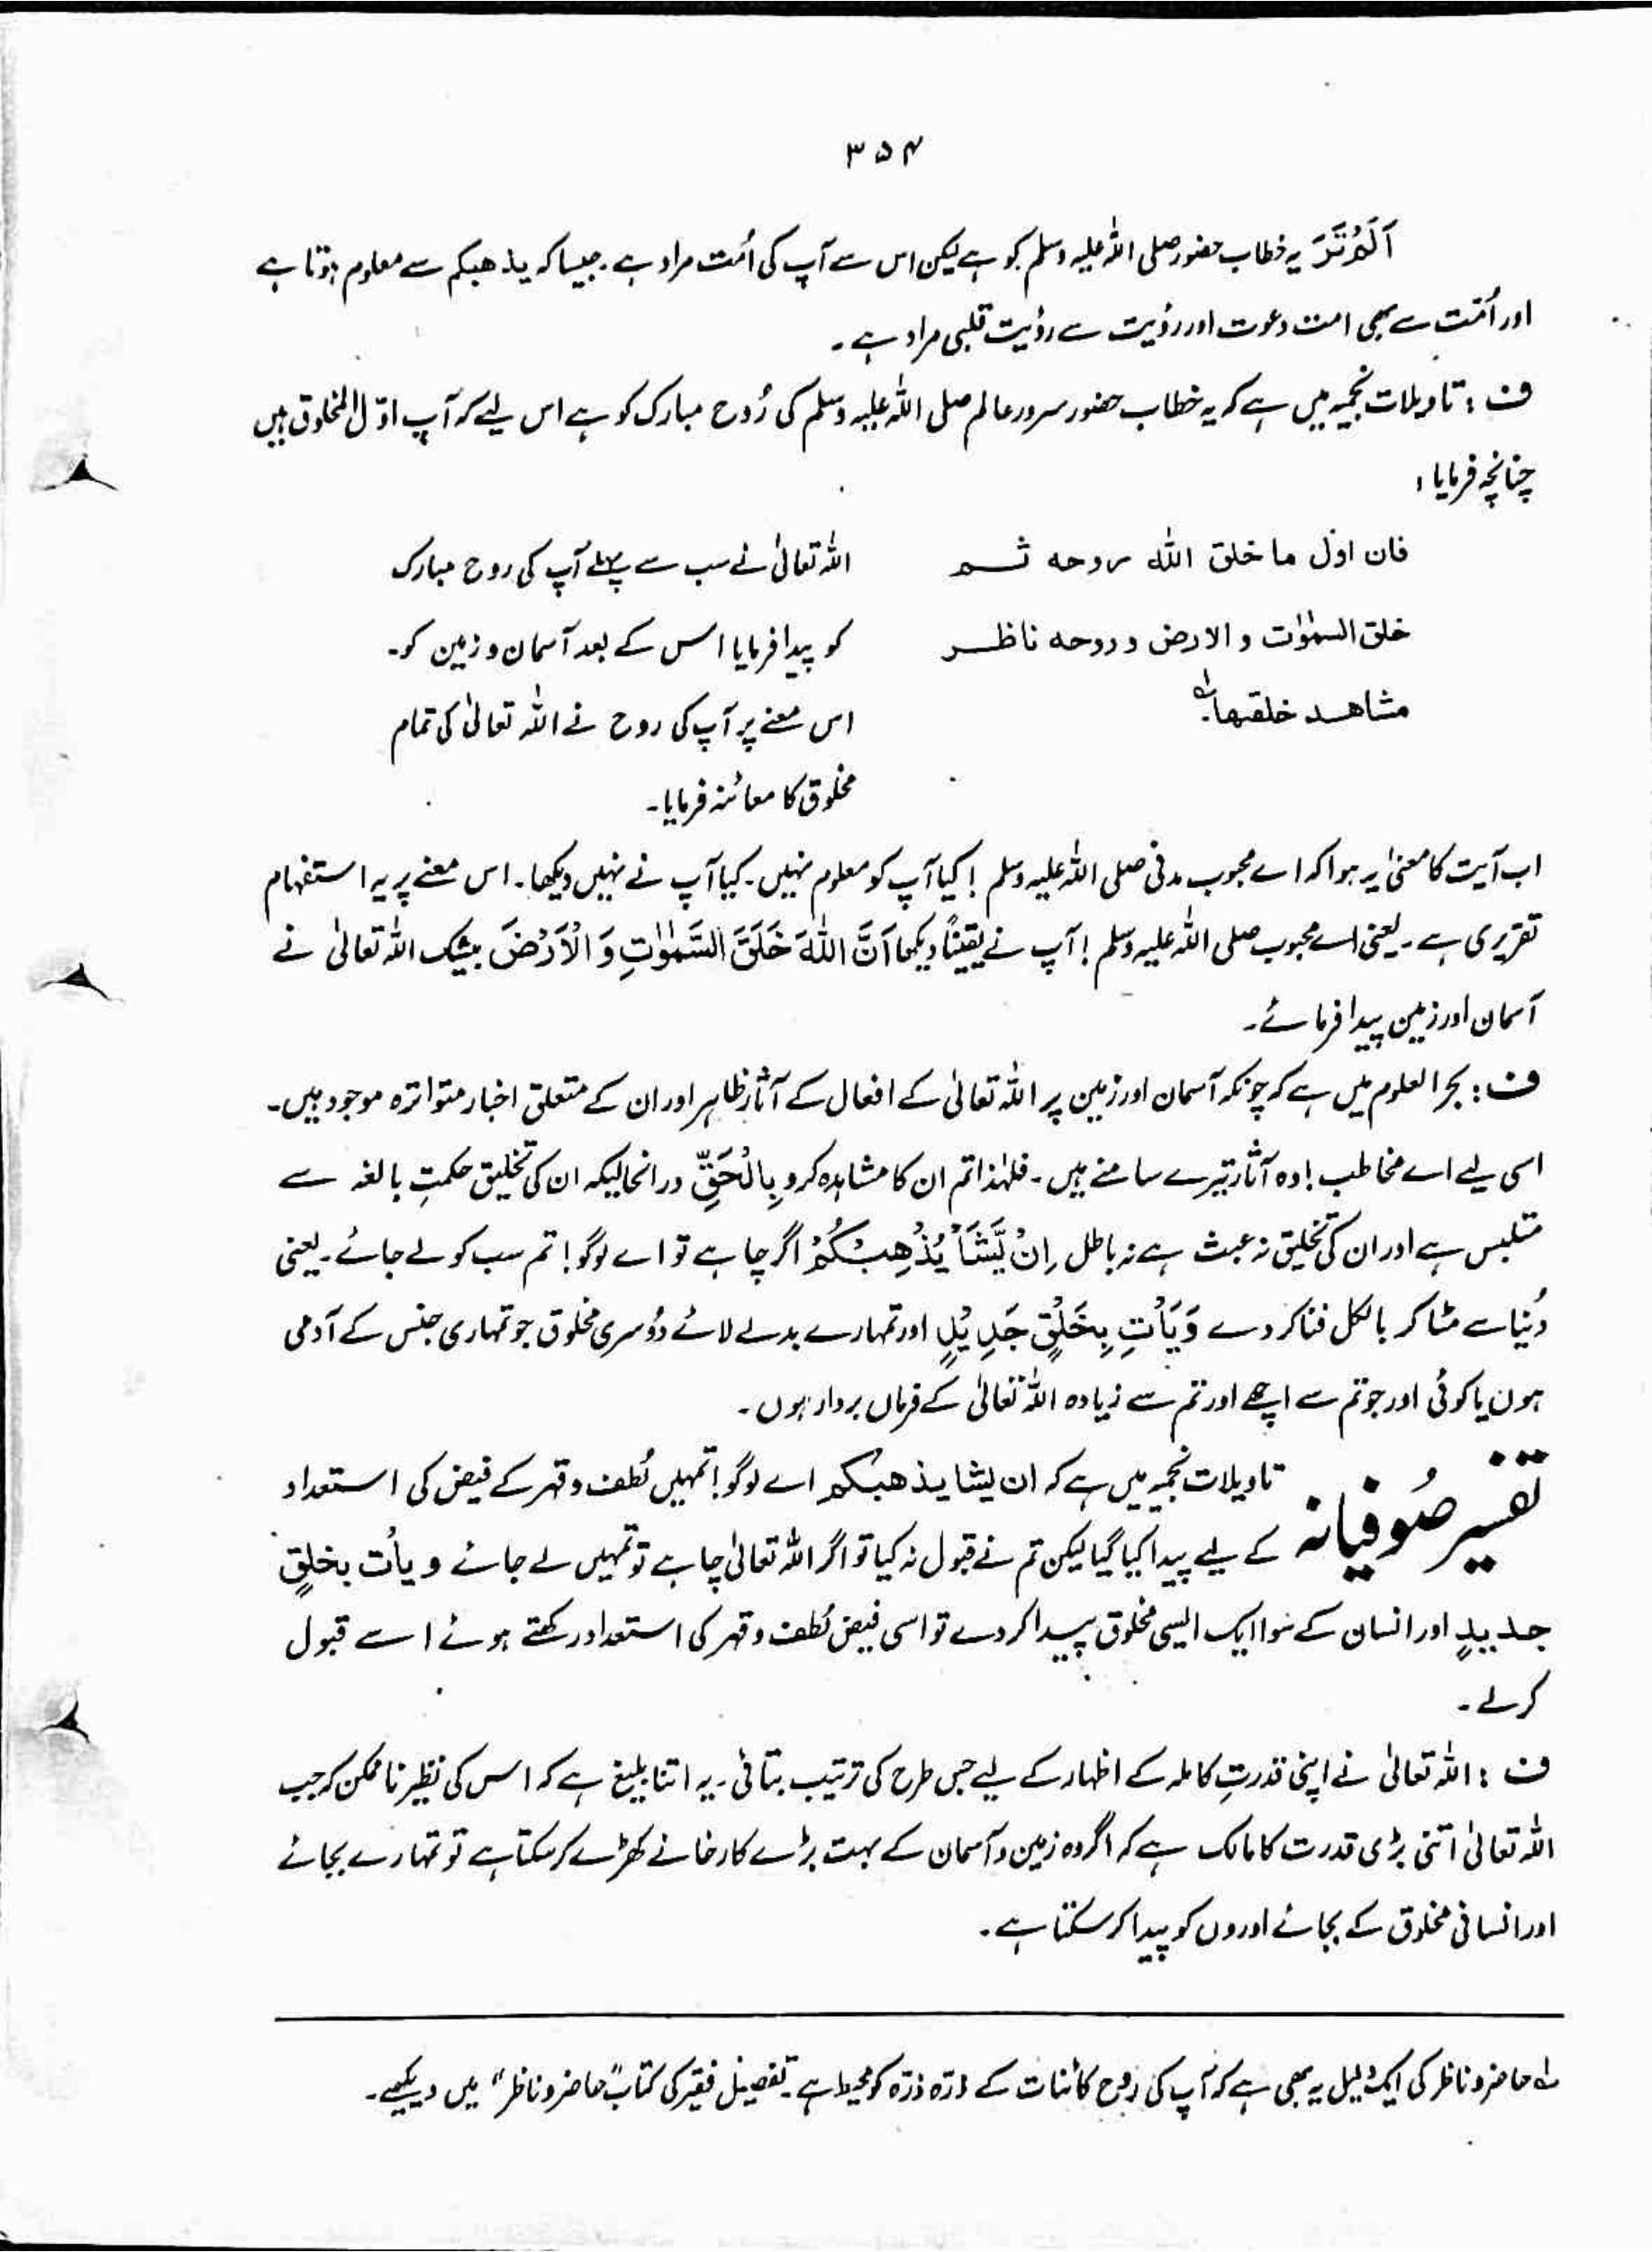 ۳۵۴
اَلَمْ تَرَ یہ خطاب حضور صلی اللہ علیہ وسلم کو ہے لیکن اس سے آپ کی اُمت مراد ہے۔ جیسا کہ یذهبكم سے معلوم ہوتا ہے
اور اُمّت سے بھی امت دعوت اور رؤیت سے رؤیت قلبی مراد ہے۔
ف : تاویلات نجمیہ میں ہے کہ یہ خطاب حضور سرور عالم صلی اللہ علیہ وسلم کی رُوح مبارک کو ہے اس لیے کہ آپ اوّل المخلوق ہیں
چنانچہ فرمایا :
فان اوّل ما خلق اللہ روحه ثم
خلق السمٰوٰت و الارض و روحه ناظر
مشاهد خلقها۔ لہ
اللہ تعالیٰ نے سب سے پہلے آپ کی روح مبارک
کو پیدا فرمایا اس کے بعد آسمان و زمین کو۔
اس معنے پر آپ کی روح نے اللہ تعالیٰ کی تمام
مخلوق کا معائنہ فرمایا۔
اب آیت کا معنیٰ یہ ہوا کہ اے محبوب مدنی صلی اللہ علیہ وسلم ! کیا آپ کو معلوم نہیں۔ کیا آپ نے نہیں دیکھا۔ اس معنے پر یہ استفہام
تقریری ہے۔ یعنی اے محبوب صلی اللہ علیہ وسلم ! آپ نے یقیناً دیکھا اَنَّ اللّٰهَ خَلَقَ السَّمٰوٰتِ وَ الْاَرْضَ بیشک اللہ تعالیٰ نے
آسمان اور زمین پیدا فرمائے۔
ف : بحر العلوم میں ہے کہ چونکہ آسمان اور زمین پر اللہ تعالیٰ کے افعال کے آثار ظاہر اور ان کے متعلق اخبار متواترہ موجود ہیں۔
اسی لیے اے مخاطب ! وہ آثار تیرے سامنے ہیں۔ فلہٰذا تم ان کا مشاہدہ کرو بِالْحَقِّ درانحالیکہ ان کی تخلیق حکمتِ بالغہ سے
متلبس ہے اور ان کی تخلیق نہ عبث ہے نہ باطل اِنْ یَّشَاْ یُذْهِبْكُمْ اگر چاہے تو اے لوگو ! تم سب کو لے جائے۔ یعنی
دُنیا سے مٹا کر بالکل فنا کر دے وَیَاْتِ بِخَلْقٍ جَدِیْدٍ اور تمہارے بدلے لائے دُوسری مخلوق جو تمہاری جنس کے آدمی
ہوں یا کوئی اور جو تم سے اچھے اور تم سے زیادہ اللہ تعالیٰ کے فرماں بردار ہوں۔
تفسیر صُوفیانہ تاویلات نجمیہ میں ہے کہ ان یشا یذهبكم اے لوگو ! تمہیں لُطف و قہر کے فیض کی استعداد
کے لیے پیدا کیا گیا لیکن تم نے قبول نہ کیا تو اگر اللہ تعالیٰ چاہے تو تمہیں لے جائے و یأت بخلقٍ
جدیدٍ اور انسان کے سوا ایک ایسی مخلوق پیدا کر دے تو اسی فیض لُطف و قہر کی استعداد رکھتے ہوئے اسے قبول
کرلے۔
ف : اللہ تعالیٰ نے اپنی قدرتِ کاملہ کے اظہار کے لیے جس طرح کی ترتیب بتائی۔ یہ اتنا بلیغ ہے کہ اس کی نظیر ناممکن کہ جب
اللہ تعالیٰ اتنی بڑی قدرت کا مالک ہے کہ اگر وہ زمین و آسمان کے بہت بڑے کارخانے کھڑے کر سکتا ہے تو تمہارے بجائے
اور انسانی مخلوق کے بجائے اوروں کو پیدا کر سکتا ہے۔
لہ حاضر و ناظر کی ایک دلیل یہ بھی ہے کہ آپ کی رُوح کائنات کے ذرّہ ذرّہ کو محیط ہے۔ تفصیل فقیر کی کتاب "حاضر و ناظر" میں دیکھیے۔